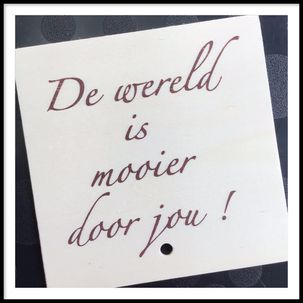 De wereld
is
mooier
door jou !